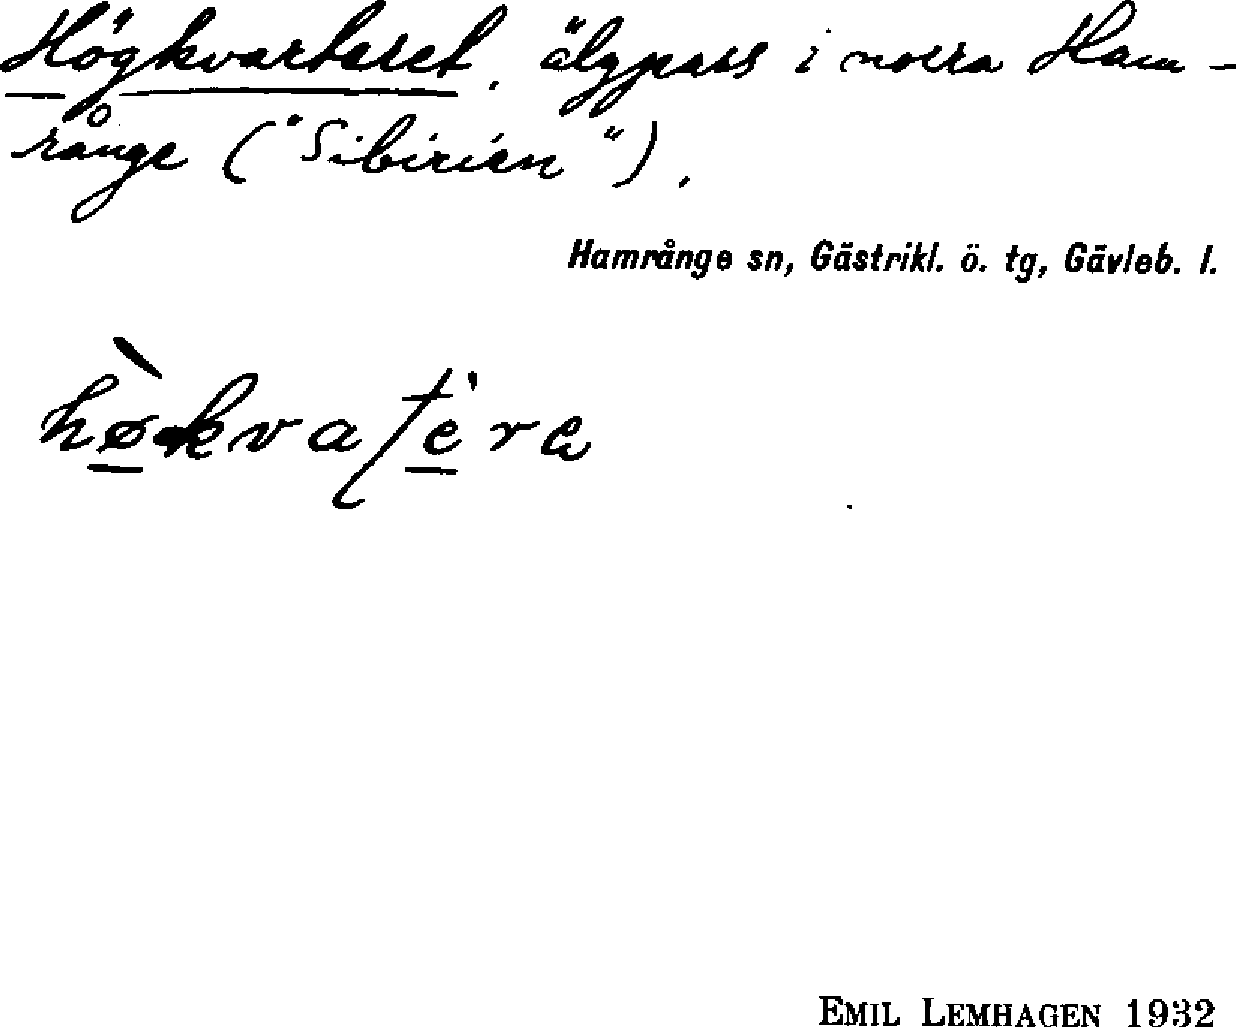 Högkvarteret, älgpass i norra Ham-
rånge ("Sibirien").
Hamrånge sn, Gästrikl. ö. tg, Gävleb. l.
EMIL LEMHAGEN 1932